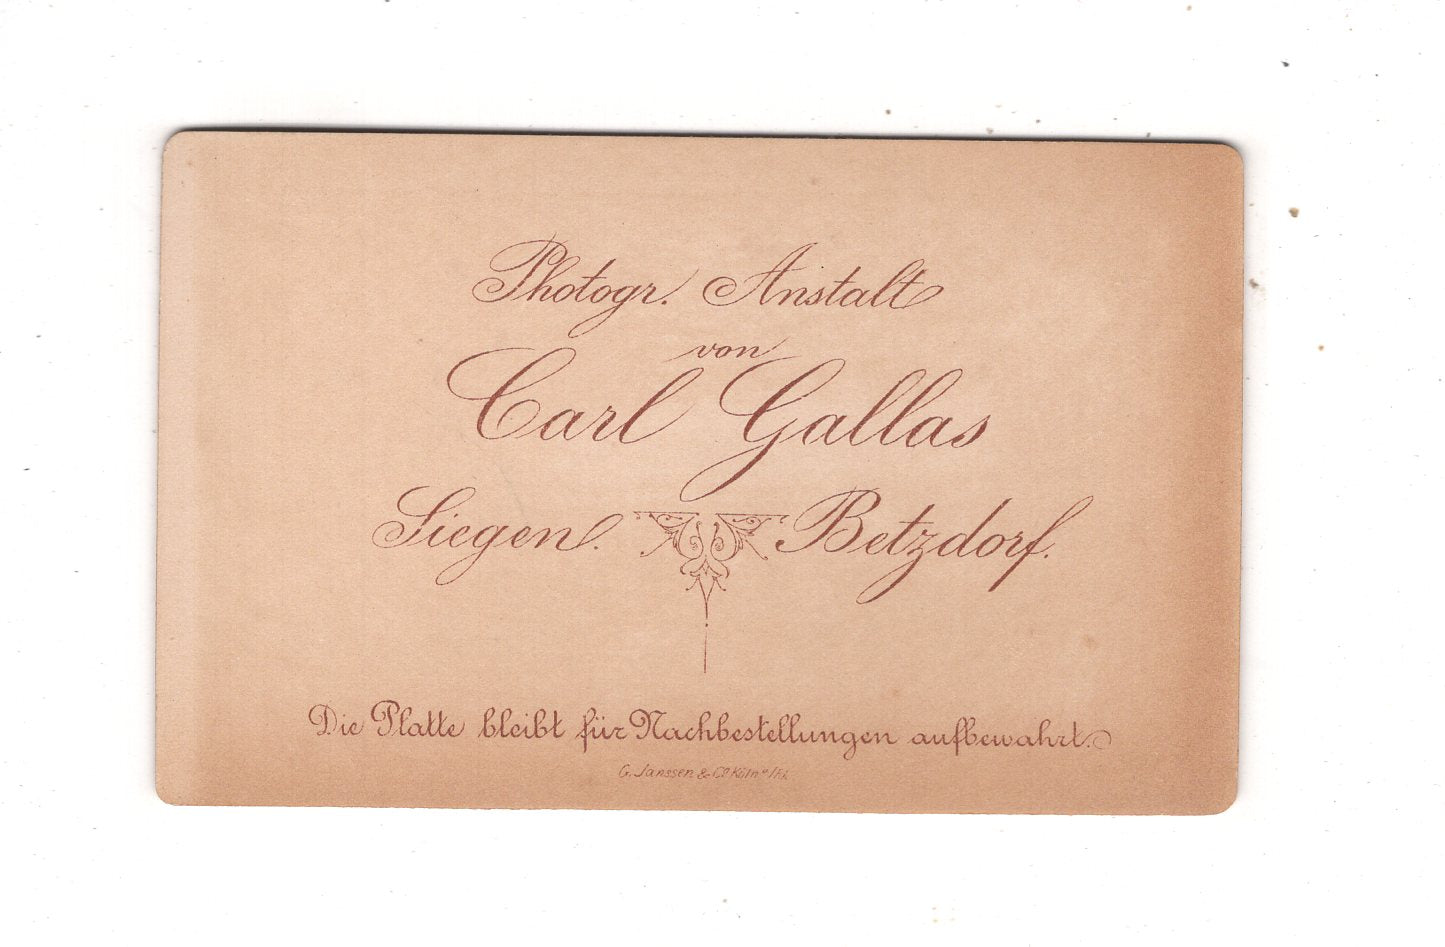 Photogr. Anstalt
von
Carl Gallas
Siegen. Betzdorf.
Die Platte bleibt für Nachbestellungen aufbewahrt.
G. Janssen & Co Köln a/Rh.